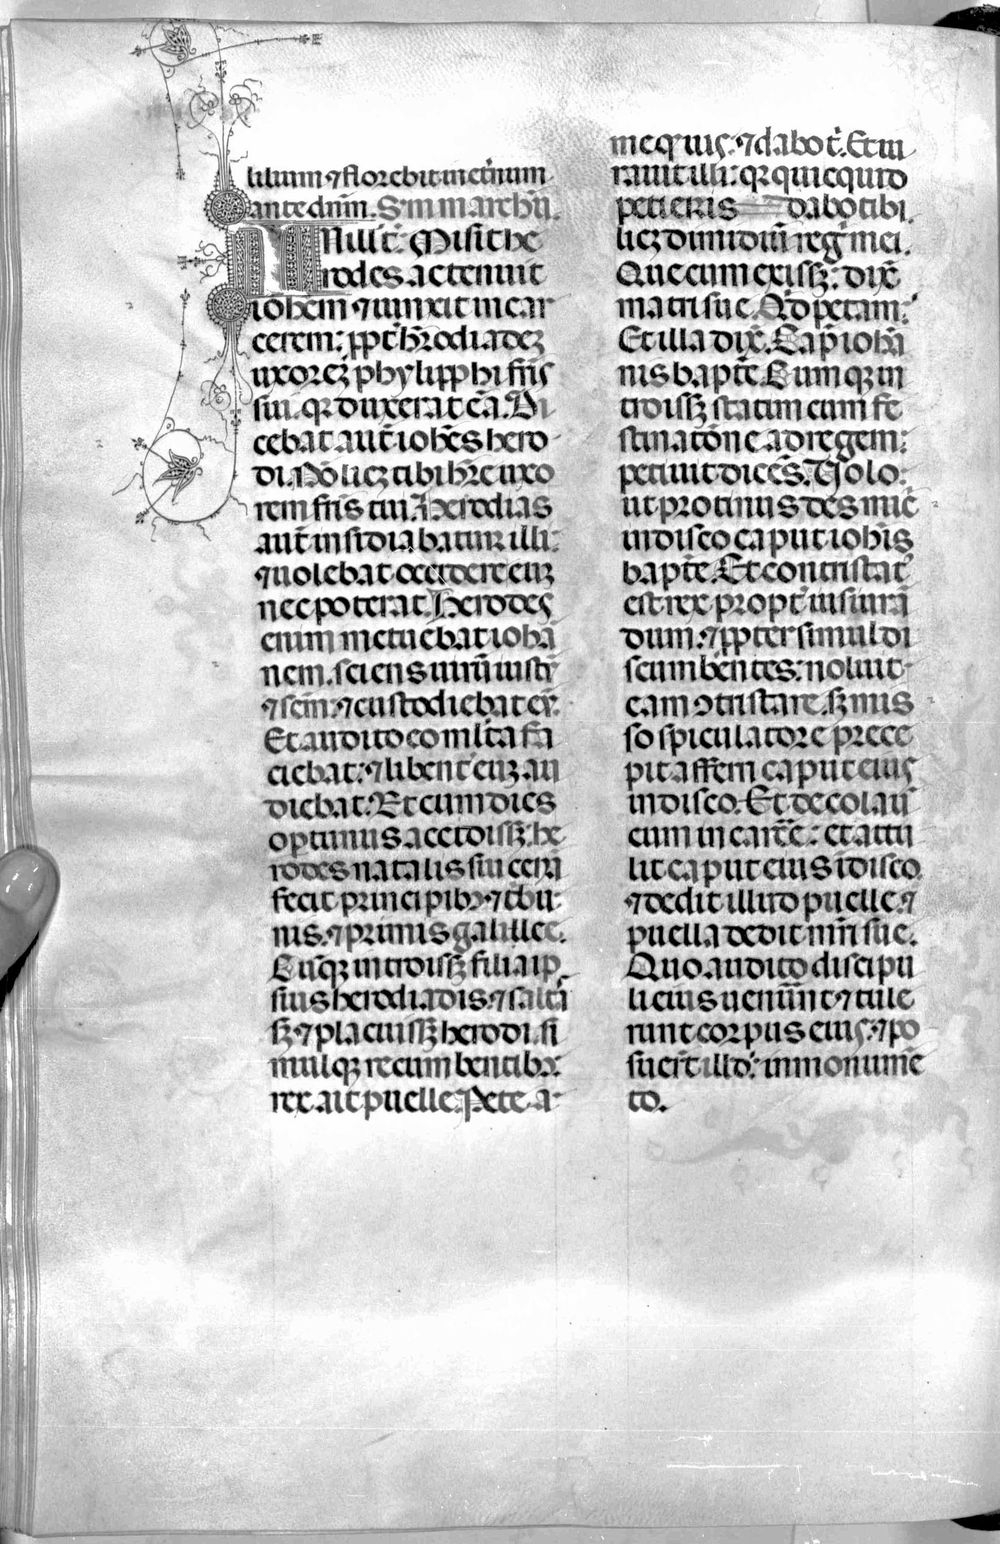 lilium ⁊ florebit inet̄num
ante dn̄m. Sm̄ marchū.
IN illt̄. Misit he
rodes ac tenuit
ioh̄em ⁊ uinxit in car
cerem: ꝓpt̄ h̄rodiadeꝫ
uxoreꝫ phylipphi fr̄is
sui. qꝛ duxerat eā. Di
cebat aut̄ ioh̄es hero
di. Nō liceꝫ tibi h̄re uxo
rem fr̄is tui. Herodias
aut̄ insidiabatur illi:
⁊ uolebat occidere euꝫ
nec poterat. Herodes
enim metuebat iohā
nem. sciens uirū iustū
⁊ sc̄m: ⁊ custodiebat eū.
Et audito eo ml̄ta fa
ciebat: ⁊ libent̄ euꝫ au
diebat. Et cum dies
optimus accidissꝫ. he
rodes natalis sui cenā
fecit principibꝫ ⁊ t̄bu
nis. ⁊ primis galilee.
Cūqꝫ introissꝫ filia ip
sius herodiadis. ⁊ saltā
sꝫ ⁊ placuissꝫ herodi. si
mulqꝫ recumbentibꝫ:
rex ait puelle. Pete a
me q̄ uis. ⁊ dabo t̄. Et iu
rauit illi: qꝛ quicquid
petieris dabo tibi.
liceꝫ dimidiū reḡ mei.
Que cum exissꝫ: dix̄
matri sue. Qd̄ petam:
Et illa dix̄. Cap̄ iohā
nis bapt̄e. Cumqꝫ in
troissꝫ statim cum fe
stinatōne ad regem:
petiuit dicēs. Uolo:
ut protinus des mic̄
in disco caput ioh̄is
bapt̄e. Et contristat᷒
est rex propt̄ iusiurā
dum: ⁊ ꝓpter simul di
scumbentes: noluit
eam ↄtristare. sꝫ mis
so spiculatore prece
pit afferri caput eius
in disco. Et decolau
eum in carc̄e: et attu
lit caput eius ī disco
⁊ dedit illud puelle. ⁊
puella dedit mr̄i sue.
Quo audito discipu
li eius uenūnt ⁊ tule
runt corpus eius. ⁊ po
suer̄t illd̄: in monumē
to.